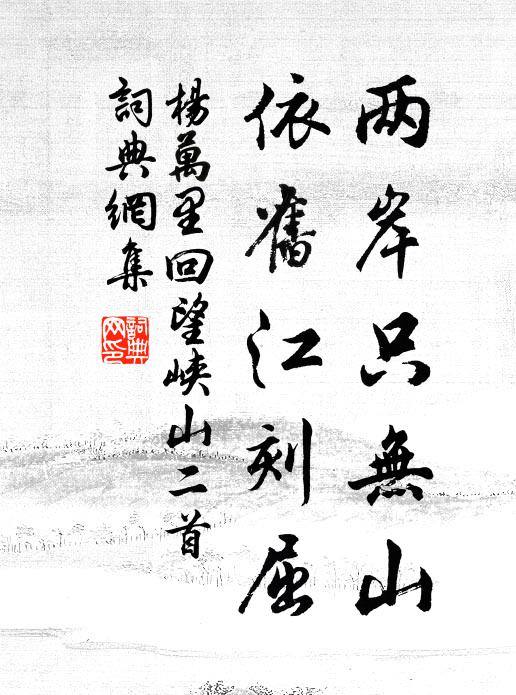 两岸只無山
依舊江刻屈
楊萬里回望峡山二首
詞典網集
詞典
网印